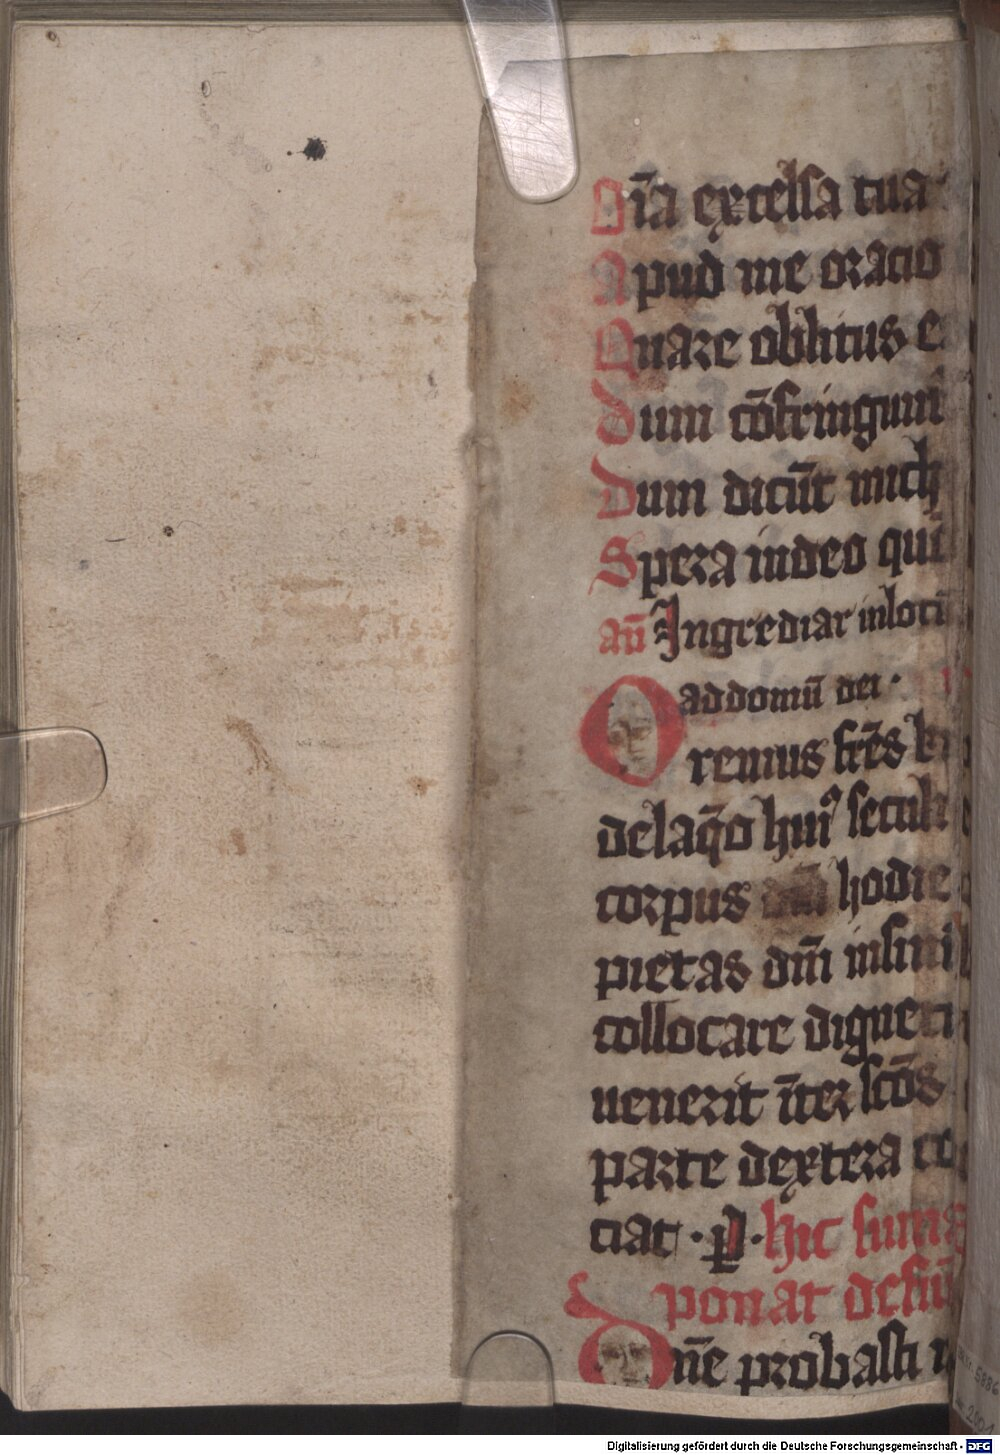 Oīa excelsa tua
Apud me oracio
Quare oblitus e
Dum cōfringunt
Dum dicūt mich
Spera in deo qui
an̄ Ingrediar in locū
ad domū dei ·
Oremus fr̄es k
de laq̄o huiꝰ seculi
corpus hodie
pietas dn̄i in sinu
collocare digne
uenerit īter scōs
parte dextera co
ciat · p̄s · hic
ponat defūc
Dn̄e probasti
Digitalisierung gefördert durch die Deutsche Forschungsgemeinschaft - DFG